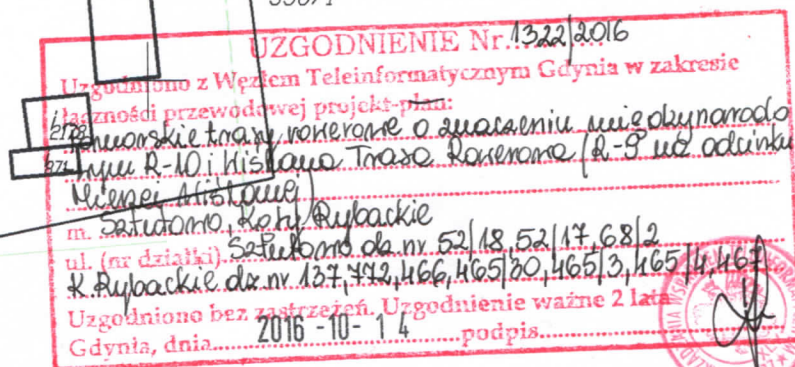 UZGODNIENIE Nr. 1322/2016
Uzgodniono z Węzłem Teleinformatycznym Gdynia w zakresie
łączności przewodowej projekt-plan:
Pomorskie trasy rowerowe o znaczeniu międzynarodo
wym R-10 i Wiślana Trasa Rowerowa (R-9 na odcinku
Mierzei Wiślanej)
m. Sztutowo, Kąty Rybackie
ul. (nr działki) Sztutowo dz. nr 52/18, 52/17, 68/2
K. Rybackie dz. nr 137, 772, 466, 465/30, 465/3, 465/4, 467
Uzgodniono bez zastrzeżeń. Uzgodnienie ważne 2 lata
Gdynia, dnia 2016-10-14 podpis